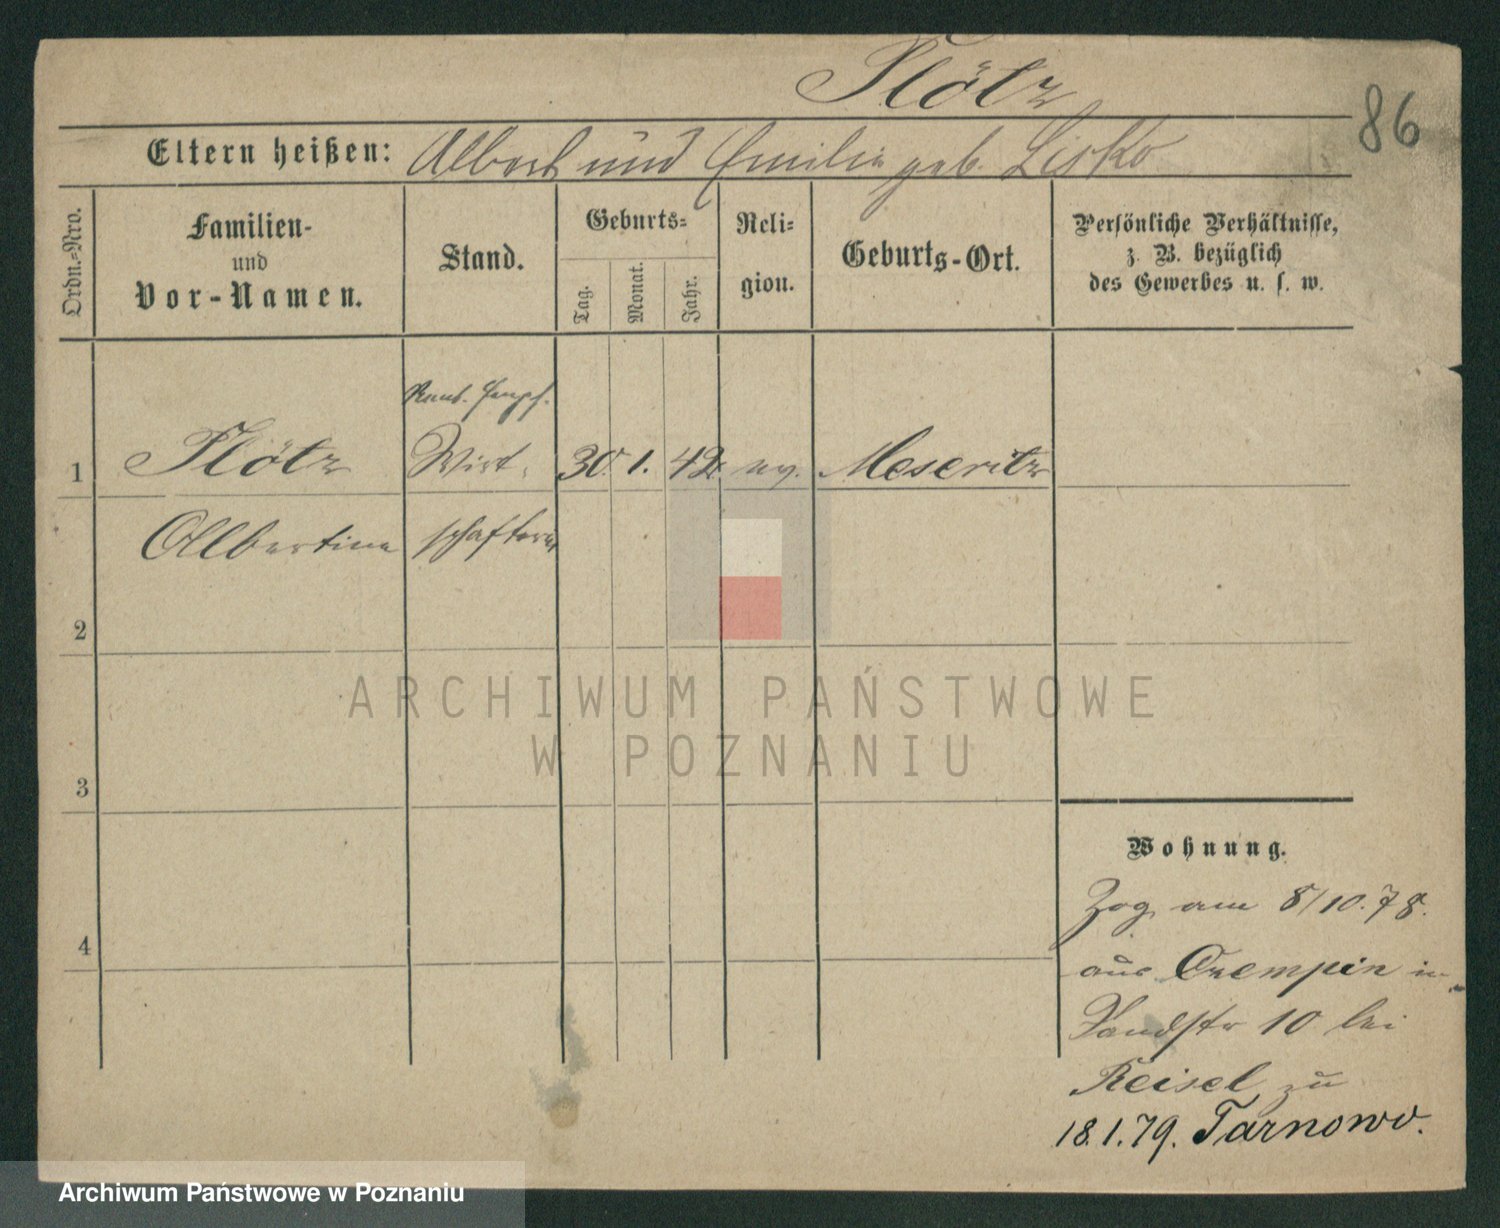 Flötz
86
Eltern heißen: Albert und Emilie geb. Lisko
Ordn.-Nro.
Familien-
und
Vor-Namen.
Stand.
Geburts-
Tag.
Monat.
Jahr.
Reli-
gion.
Geburts-Ort.
Persönliche Verhältnisse,
z. B. bezüglich
des Gewerbes u. s. w.
1 Flötz Wirt- 30. 1. 42. ev. Meseritz
Albertine schafterin
2
3
4
Wohnung.
Zog am 8/10.78.
aus Czempin in
Sandstr 10 bei
Reisel zu
18.1.79. Tarnowo.
ARCHIWUM PAŃSTWOWE
W POZNANIU
Archiwum Państwowe w Poznaniu